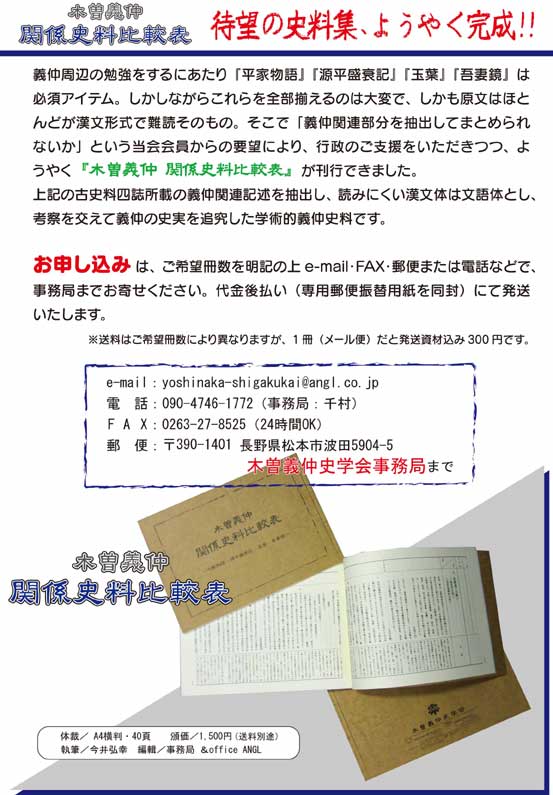 木曽義仲
関係史料比較表
待望の史料集、ようやく完成!!
義仲周辺の勉強をするにあたり『平家物語』『源平盛衰記』『玉葉』『吾妻鏡』は
必須アイテム。しかしながらこれらを全部揃えるのは大変で、しかも原文はほと
んどが漢文形式で難読そのもの。そこで「義仲関連部分を抽出してまとめられ
ないか」という当会会員からの要望により、行政のご支援をいただきつつ、よ
うやく『木曽義仲 関係史料比較表』が刊行できました。
上記の古史料四誌所載の義仲関連記述を抽出し、読みにくい漢文体は文語体とし、
考察を交えて義仲の史実を追究した学術的義仲史料です。
お申し込みは、ご希望冊数を明記の上e-mail・FAX・郵便または電話などで、
事務局までお寄せください。代金後払い（専用郵便振替用紙を同封）にて発送
いたします。
※送料はご希望冊数により異なりますが、1冊（メール便）だと発送資材込み300円です。
e-mail：yoshinaka-shigakukai@angl.co.jp
電　話：090-4746-1772（事務局：千村）
ＦＡＸ：0263-27-8525（24時間OK）
郵　便：〒390-1401 長野県松本市波田5904-5
木曽義仲史学会事務局まで
木曽義仲
関係史料比較表
木曽義仲
関係史料比較表
木曽義仲史学会
体裁／A4横判・40頁　頒価／1,500円（送料別途）
執筆／今井弘幸　編輯／事務局 &office ANGL